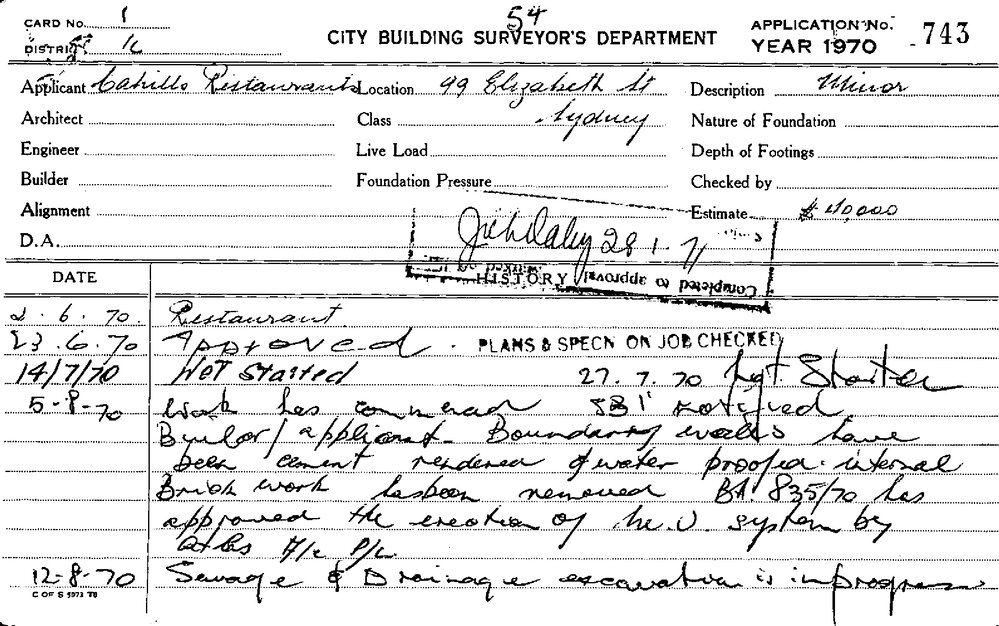 CARD No. 1
54
CITY BUILDING SURVEYOR'S DEPARTMENT
APPLICATION No. 743
DISTRICT
YEAR 1970
Applicant Cahills Restaurants Location 99 Elizabeth St Description Minor
Architect Class Sydney Nature of Foundation
Engineer Live Load Depth of Footings
Builder Foundation Pressure Checked by
Alignment Estimate $40,000
D.A. John Daley 28 1 71
Completed to approval
DATE HISTORY
2.6.70. Restaurant.
23.6.70 Approved. PLANS & SPECN ON JOB CHECKED
14/7/70 Not Started 27.7.70 Not Started
5-8-70 Work has commenced SBI notified
Builder/applicant. Boundary walls have
been cement rendered & water proofed. internal
Brick work has been removed BA 835/70 has
approved the erection of the system by
A/c P/L
12-8-70 Sewage & Drainage excavation is in progress
C OF S 5973 78